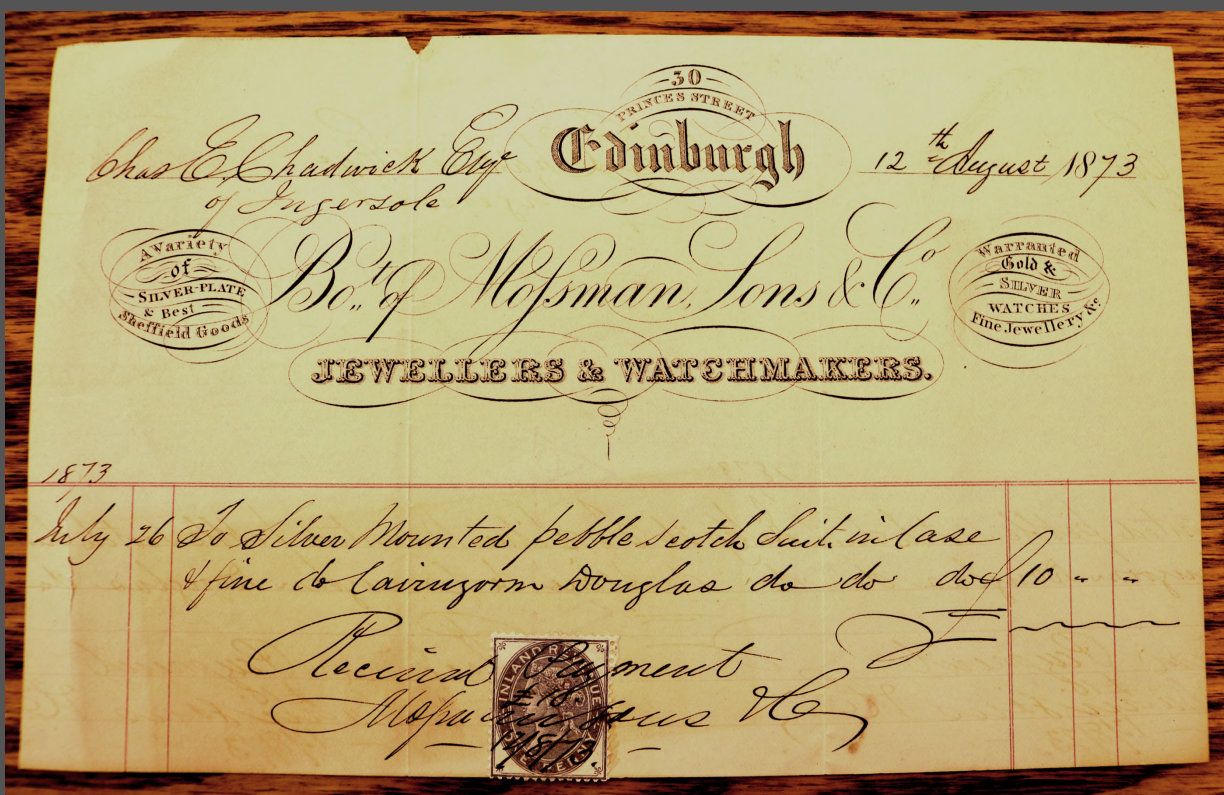 30
PRINCES STREET
Edinburgh
Chas E. Chadwick Esqr
of Ingersole
12th August 1873
A Variety
of
SILVER-PLATE
& Best
Sheffield Goods
Bot. of Mossman, Sons & Co.
Warranted
Gold &
SILVER
WATCHES
Fine Jewellery &c
JEWELLERS & WATCHMAKERS.
1873
July 26 To Silver Mounted pebble Scotch Suit in Case
& fine do Cairngorm Douglas do do do £ 10 " "
Received Payment
Mossman Sons & Co
INLAND REVENUE
ONE PENNY